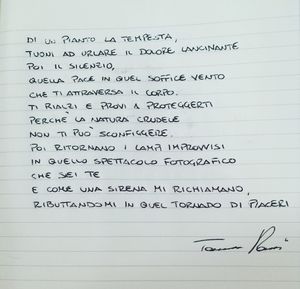 DI UN PIANTO LA TEMPESTA,
TUONI AD URLARE IL DOLORE LANCINANTE
POI IL SILENZIO,
QUELLA PACE IN QUEL SOFFICE VENTO
CHE TI ATTRAVERSA IL CORPO.
TI RIALZI E PROVI A PROTEGGERTI
PERCHÈ LA NATURA CRUDELE
NON TI PUÒ SCONFIGGERE.
POI RITORNANO I LAMPI IMPROVVISI
IN QUELLO SPETTACOLO FOTOGRAFICO
CHE SEI TE
E COME UNA SIRENA MI RICHIAMANO,
RIBUTTANDOMI IN QUEL TORNADO DI PIACERI